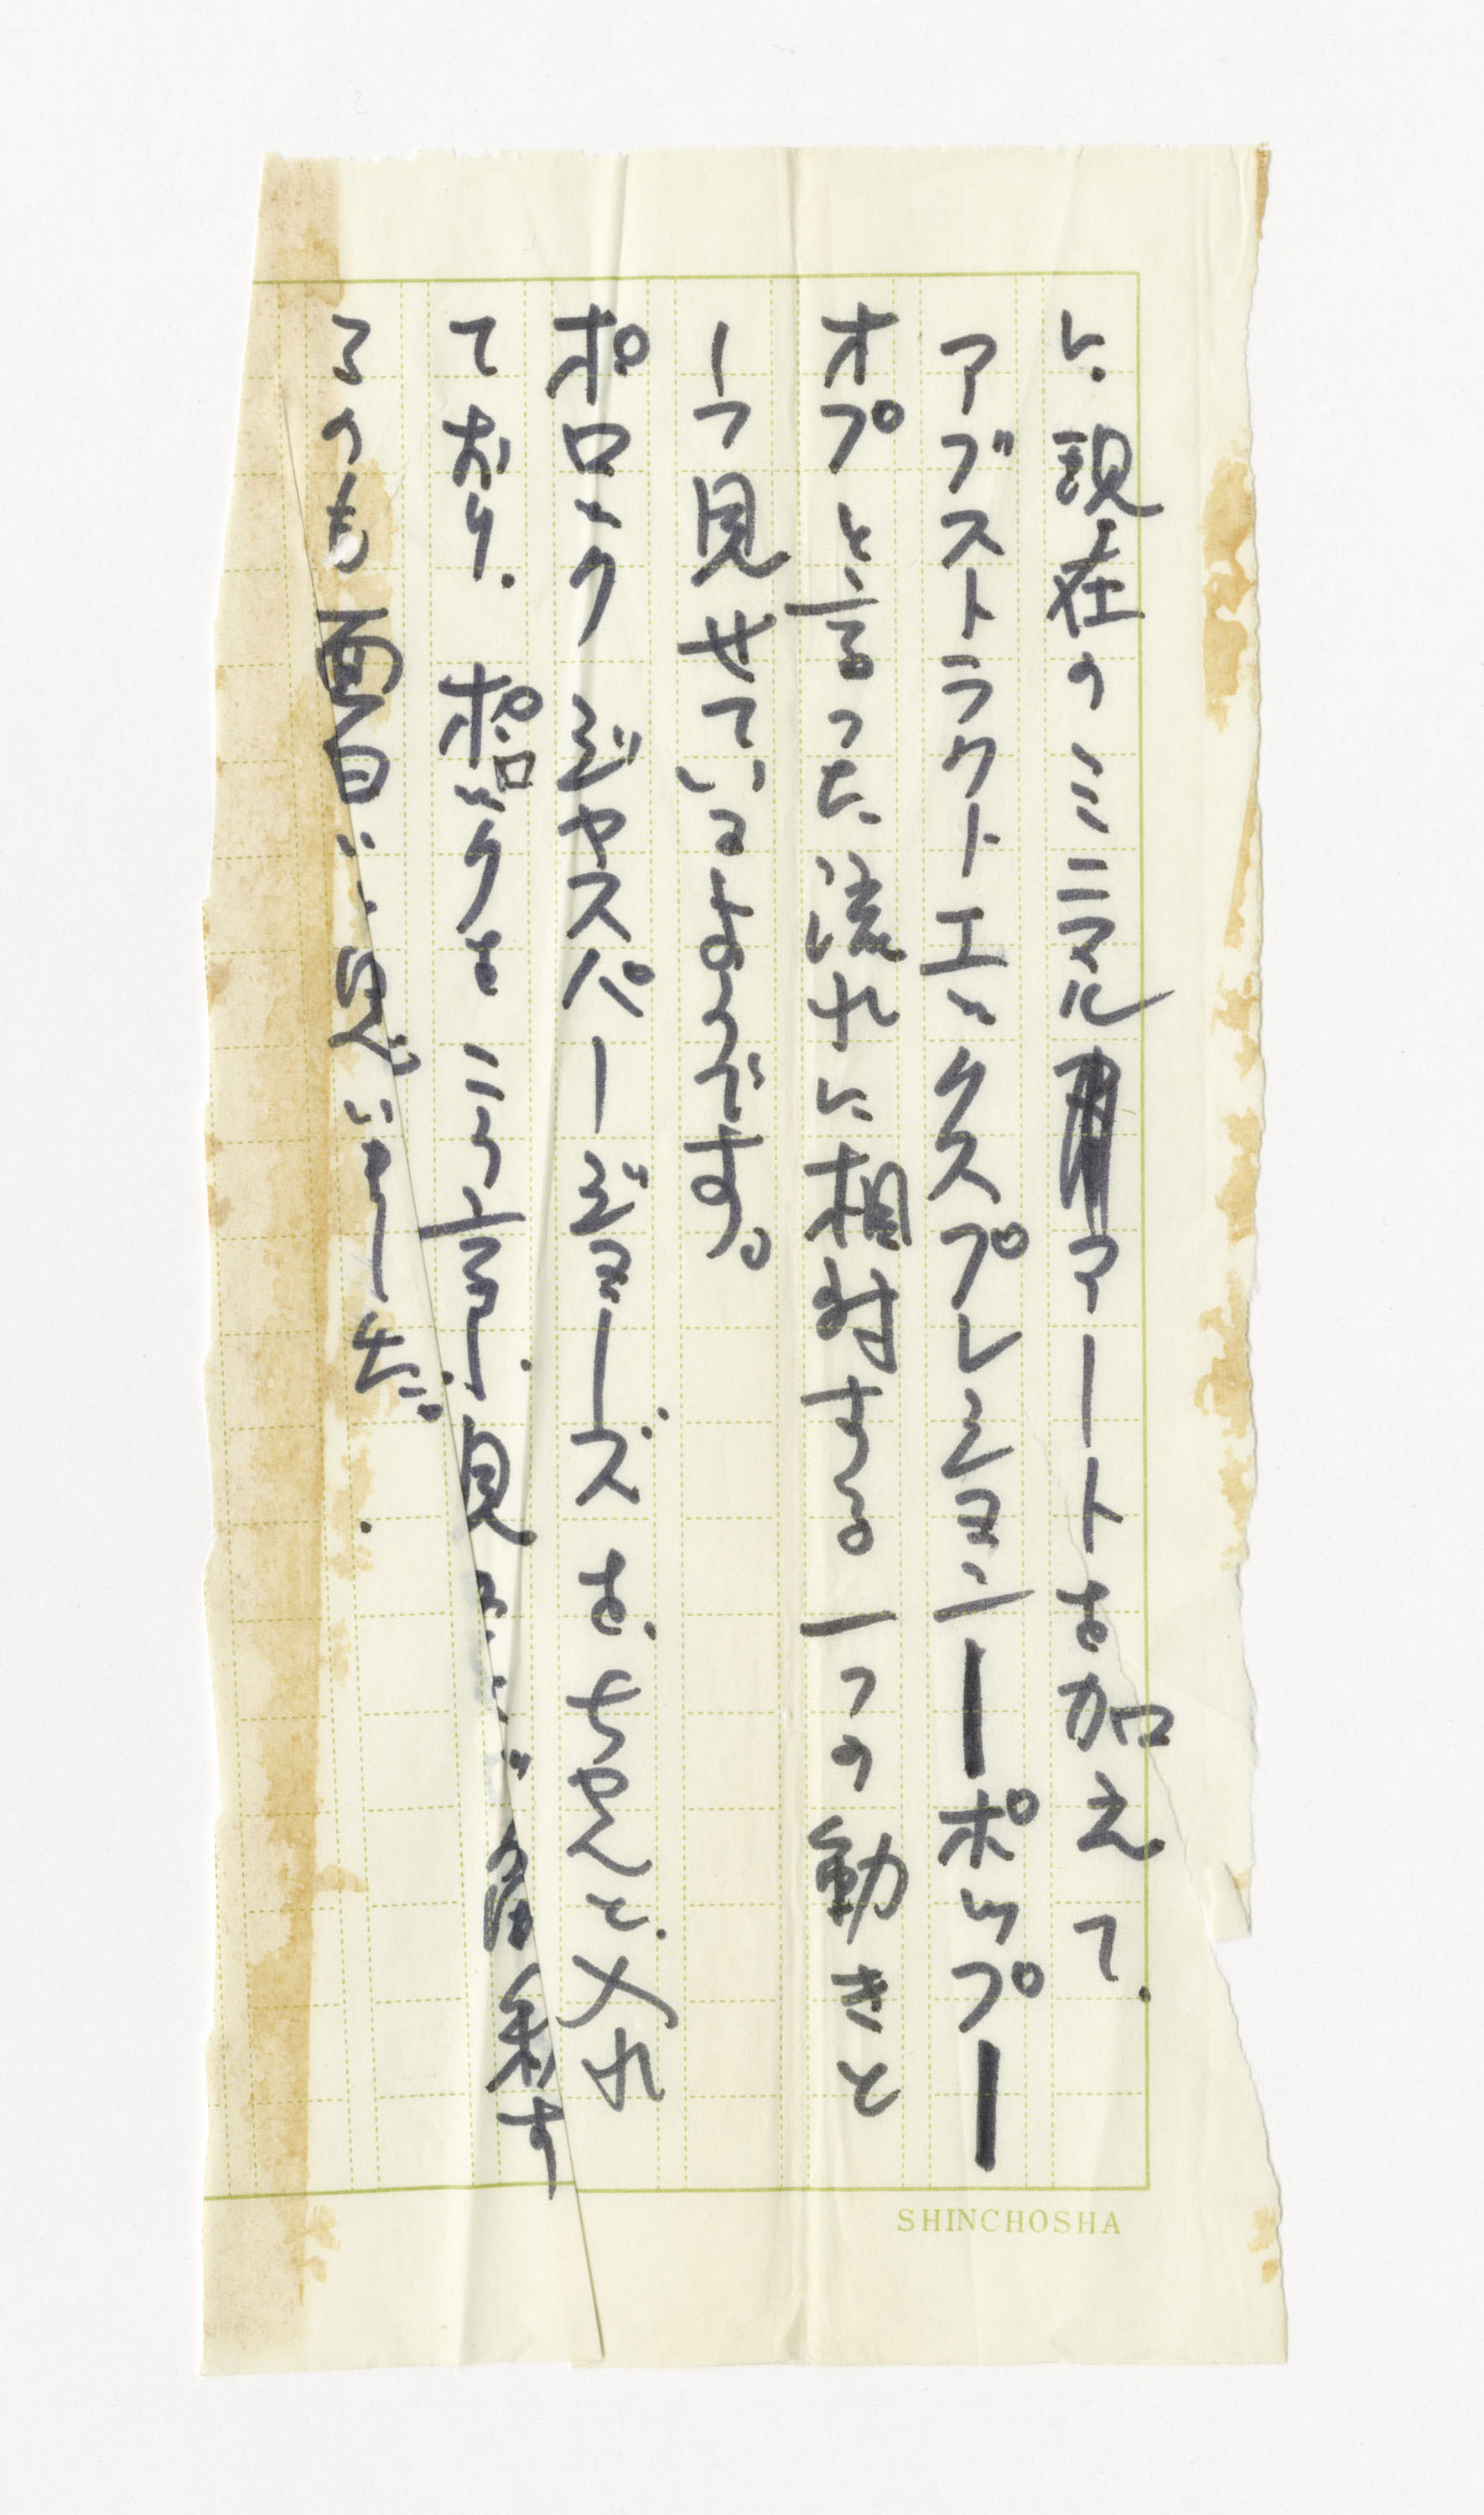 に現在のミニマルアートを加えて、
アブストラクトエックスプレション―ポップ―
オプと言った流れに相対する一つの動きと
して見せているようです。
ポロック ジャスパージョーンズ はちゃんと入れ
ており、ポロックは
るのも面白いと思いました。
SHINCHOSHA